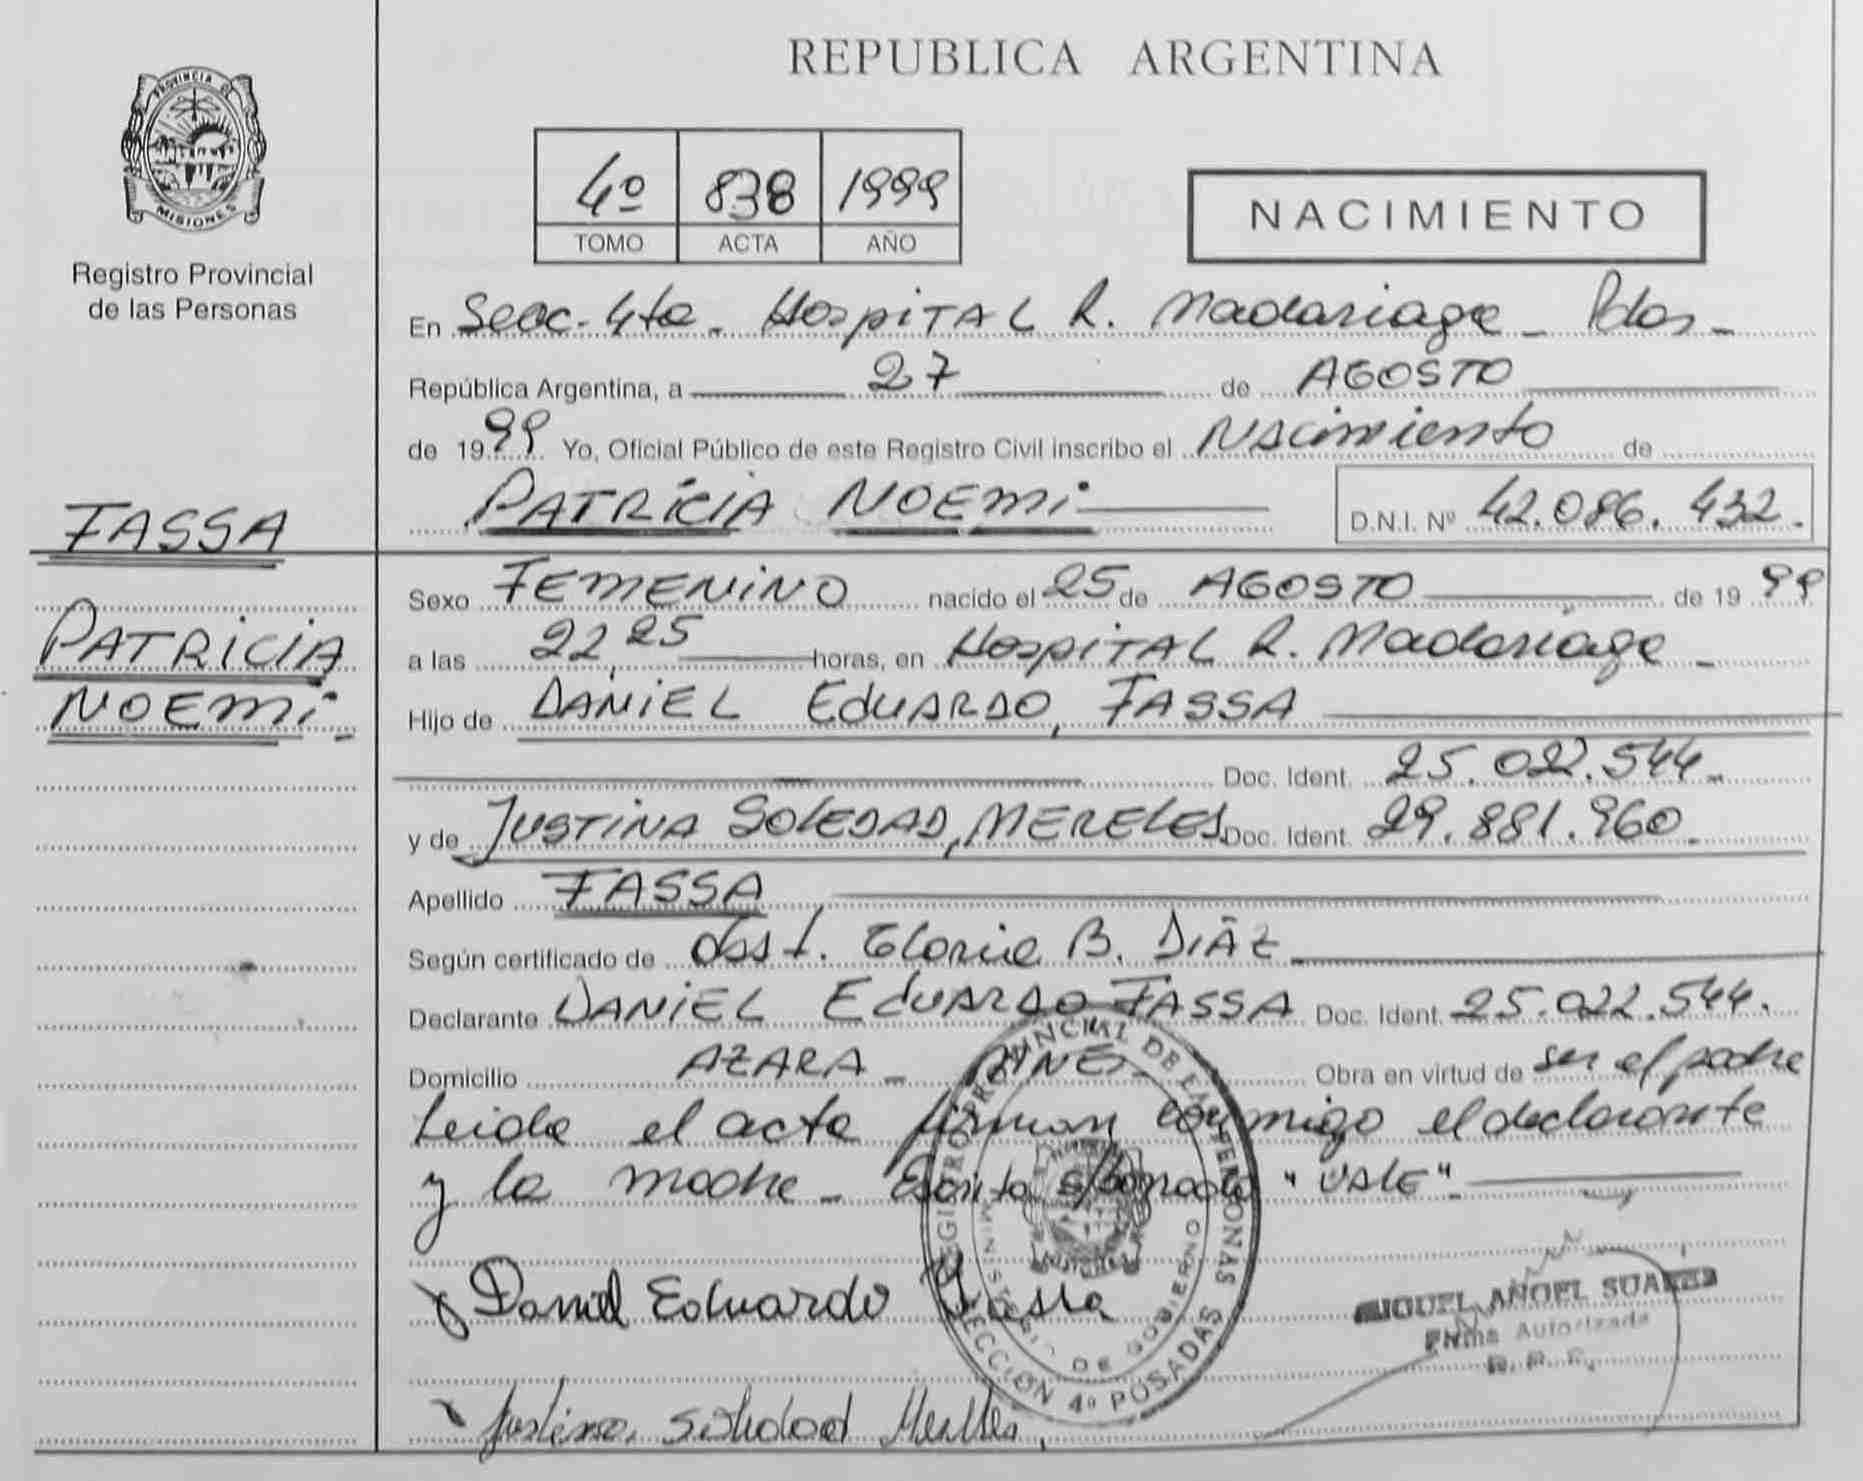 REPUBLICA ARGENTINA
PROVINCIA DE
MISIONES
Registro Provincial
de las Personas
4º 838 1999
TOMO ACTA AÑO
NACIMIENTO
En Secc. 4ta. Hospital R. Madariaga - Pdas -
República Argentina, a 27 de AGOSTO
de 1999 Yo, Oficial Público de este Registro Civil inscribo el Nacimiento de
PATRICIA NOEMI D.N.I. Nº 42.086.432.
FASSA
PATRICIA
NOEMI.
Sexo FEMENINO nacido el 25 de AGOSTO de 1999
a las 22,25 horas, en Hospital R. Madariaga -
Hijo de DANIEL EDUARDO, FASSA
Doc. Ident. 25.022.544.
y de JUSTINA SOLEDAD, MERELES Doc. Ident. 29.881.960.
Apellido FASSA
Según certificado de Obst. Gloria B. DIAZ
Declarante DANIEL EDUARDO FASSA Doc. Ident. 25.022.544.
Domicilio AZARA - Obra en virtud de ser el padre
Leida el acta firman conmigo el declarante
y la madre - Escrito "VALE".
Daniel Eduardo Fassa
REGISTRO PROVINCIAL DE LAS PERSONAS
SECCION 4º POSADAS
MINISTERIO DE GOBIERNO
MIGUEL ANGEL SUAREZ
Firma Autorizada
Justina Soledad Mereles